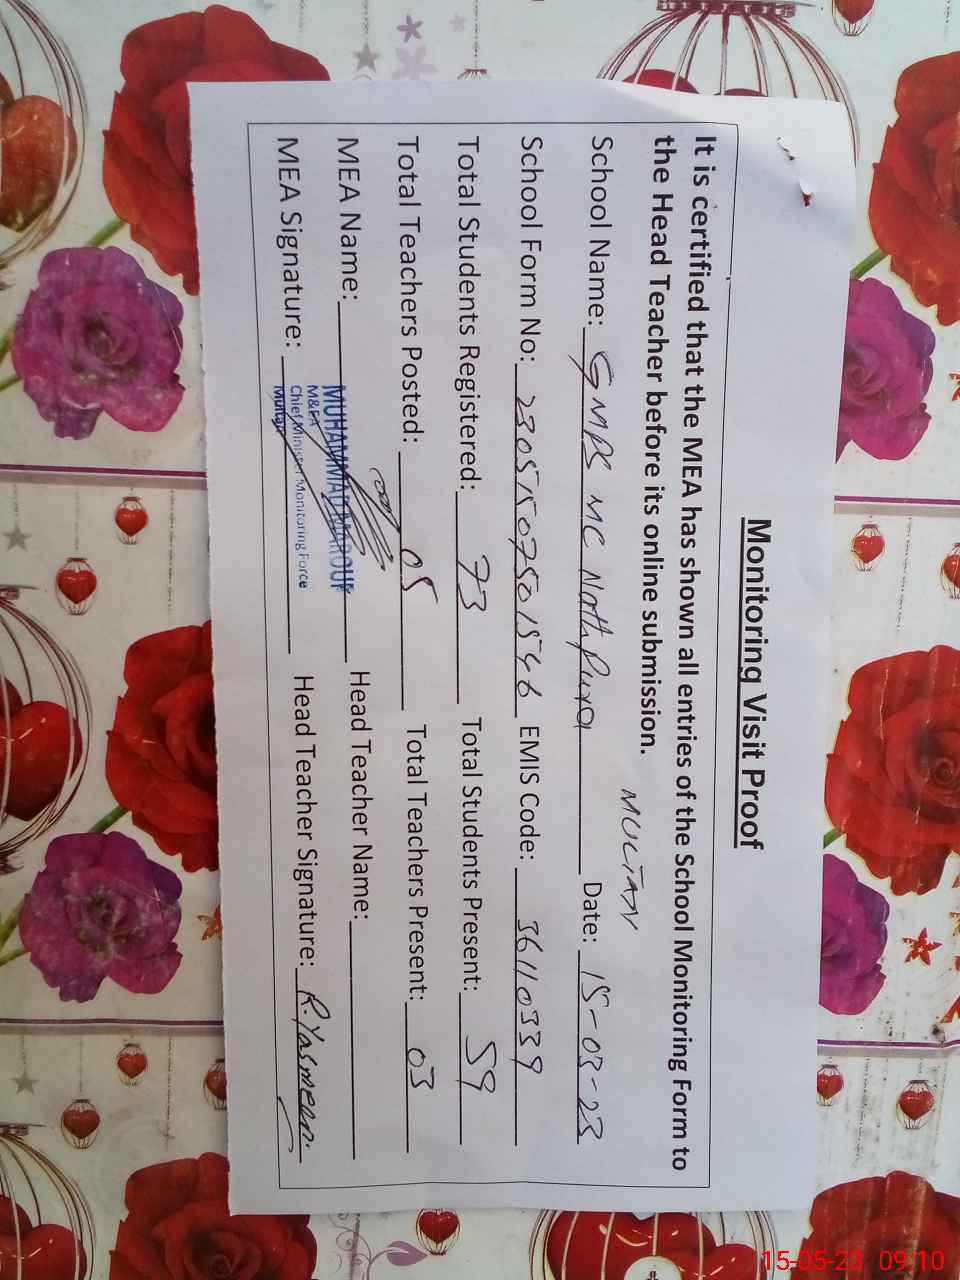 Monitoring Visit Proof
It is certified that the MEA has shown all entries of the School Monitoring Form to
the Head Teacher before its online submission.
MULTAN
School Name: GMPS MC Nathpura Date: 15-03-23
School Form No: 23051507501546 EMIS Code: 36110339
Total Students Registered: 73 Total Students Present: 59
Total Teachers Posted: 05 Total Teachers Present: 03
MEA Name: MUHAMMAD MAROUF Head Teacher Name:
M&EA
Chief Minister Monitoring Force
Multan
MEA Signature: Head Teacher Signature: R. Yasmeen.
15-05-23 09:10